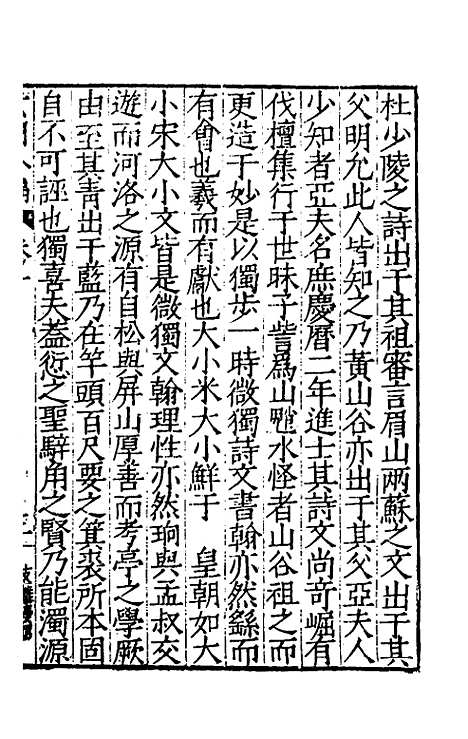 杜少陵之詩出于其祖審言眉山兩蘇之文出于其
父明允此人皆知之乃黃山谷亦出于其父亞夫人
少知者亞夫名庶慶曆二年進士其詩文尚奇崛有
伐檀集行于世昧子訾爲山魈水怪者山谷祖之而
更造于妙是以獨步一時微獨詩文書翰亦然繇而
有會也羲而有獻也大小米大小鮮于 皇朝如大
小宋大小文皆是微獨文翰理性亦然珦與孟叔交
遊而河洛之源有自松與屏山厚善而考亭之學厥
由至其靑出于藍乃在竿頭百尺要之箕裘所本固
自不可誣也獨喜夫葢愆之聖騂角之賢乃能濁源